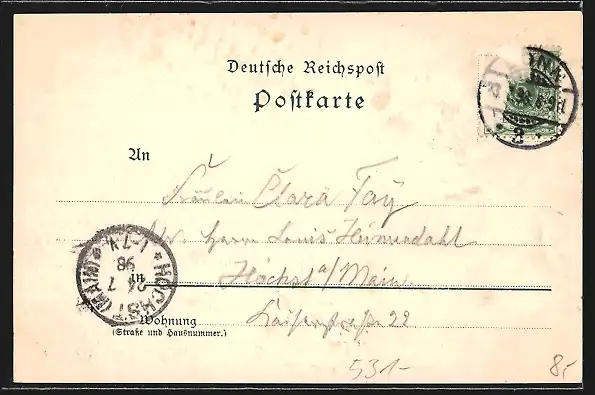 Deutsche Reichspost
Postkarte
An
Fräulein Clara Faÿ
Adr. Herrn Louis Himmendahl
Höchst a/Main
in
Kaiserstraße 22
Wohnung
(Straße und Hausnummer.)
HÖCHST (MAIN)
24 7
98
1-7N
2
531-
8,-